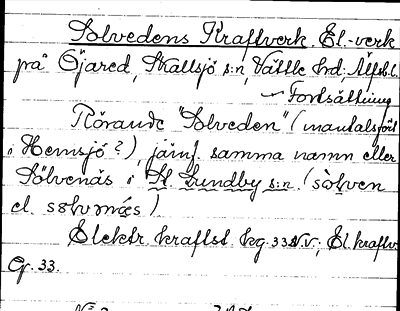 Solvedens Kraftverk. El.-verk
på Öjared, Skallsjö s:n, Vättle hd; Älfsb.l.
Fortsättning
Rörande "Solveden" (mantalsförl
i Hemsjö?), jämf. samma namn eller
Sölvenäs i St. Lundby s:n. (sòlven
el. sølvmǽs)
Elektr. kraftst. kg. 33 N.V., El. kraftv
Cg. 33.